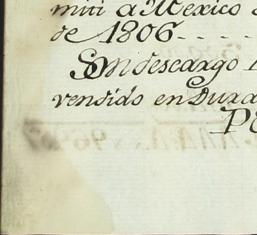 miti a Mexico
de 1806 - - - -
Son descargo
vendido en Dura
P